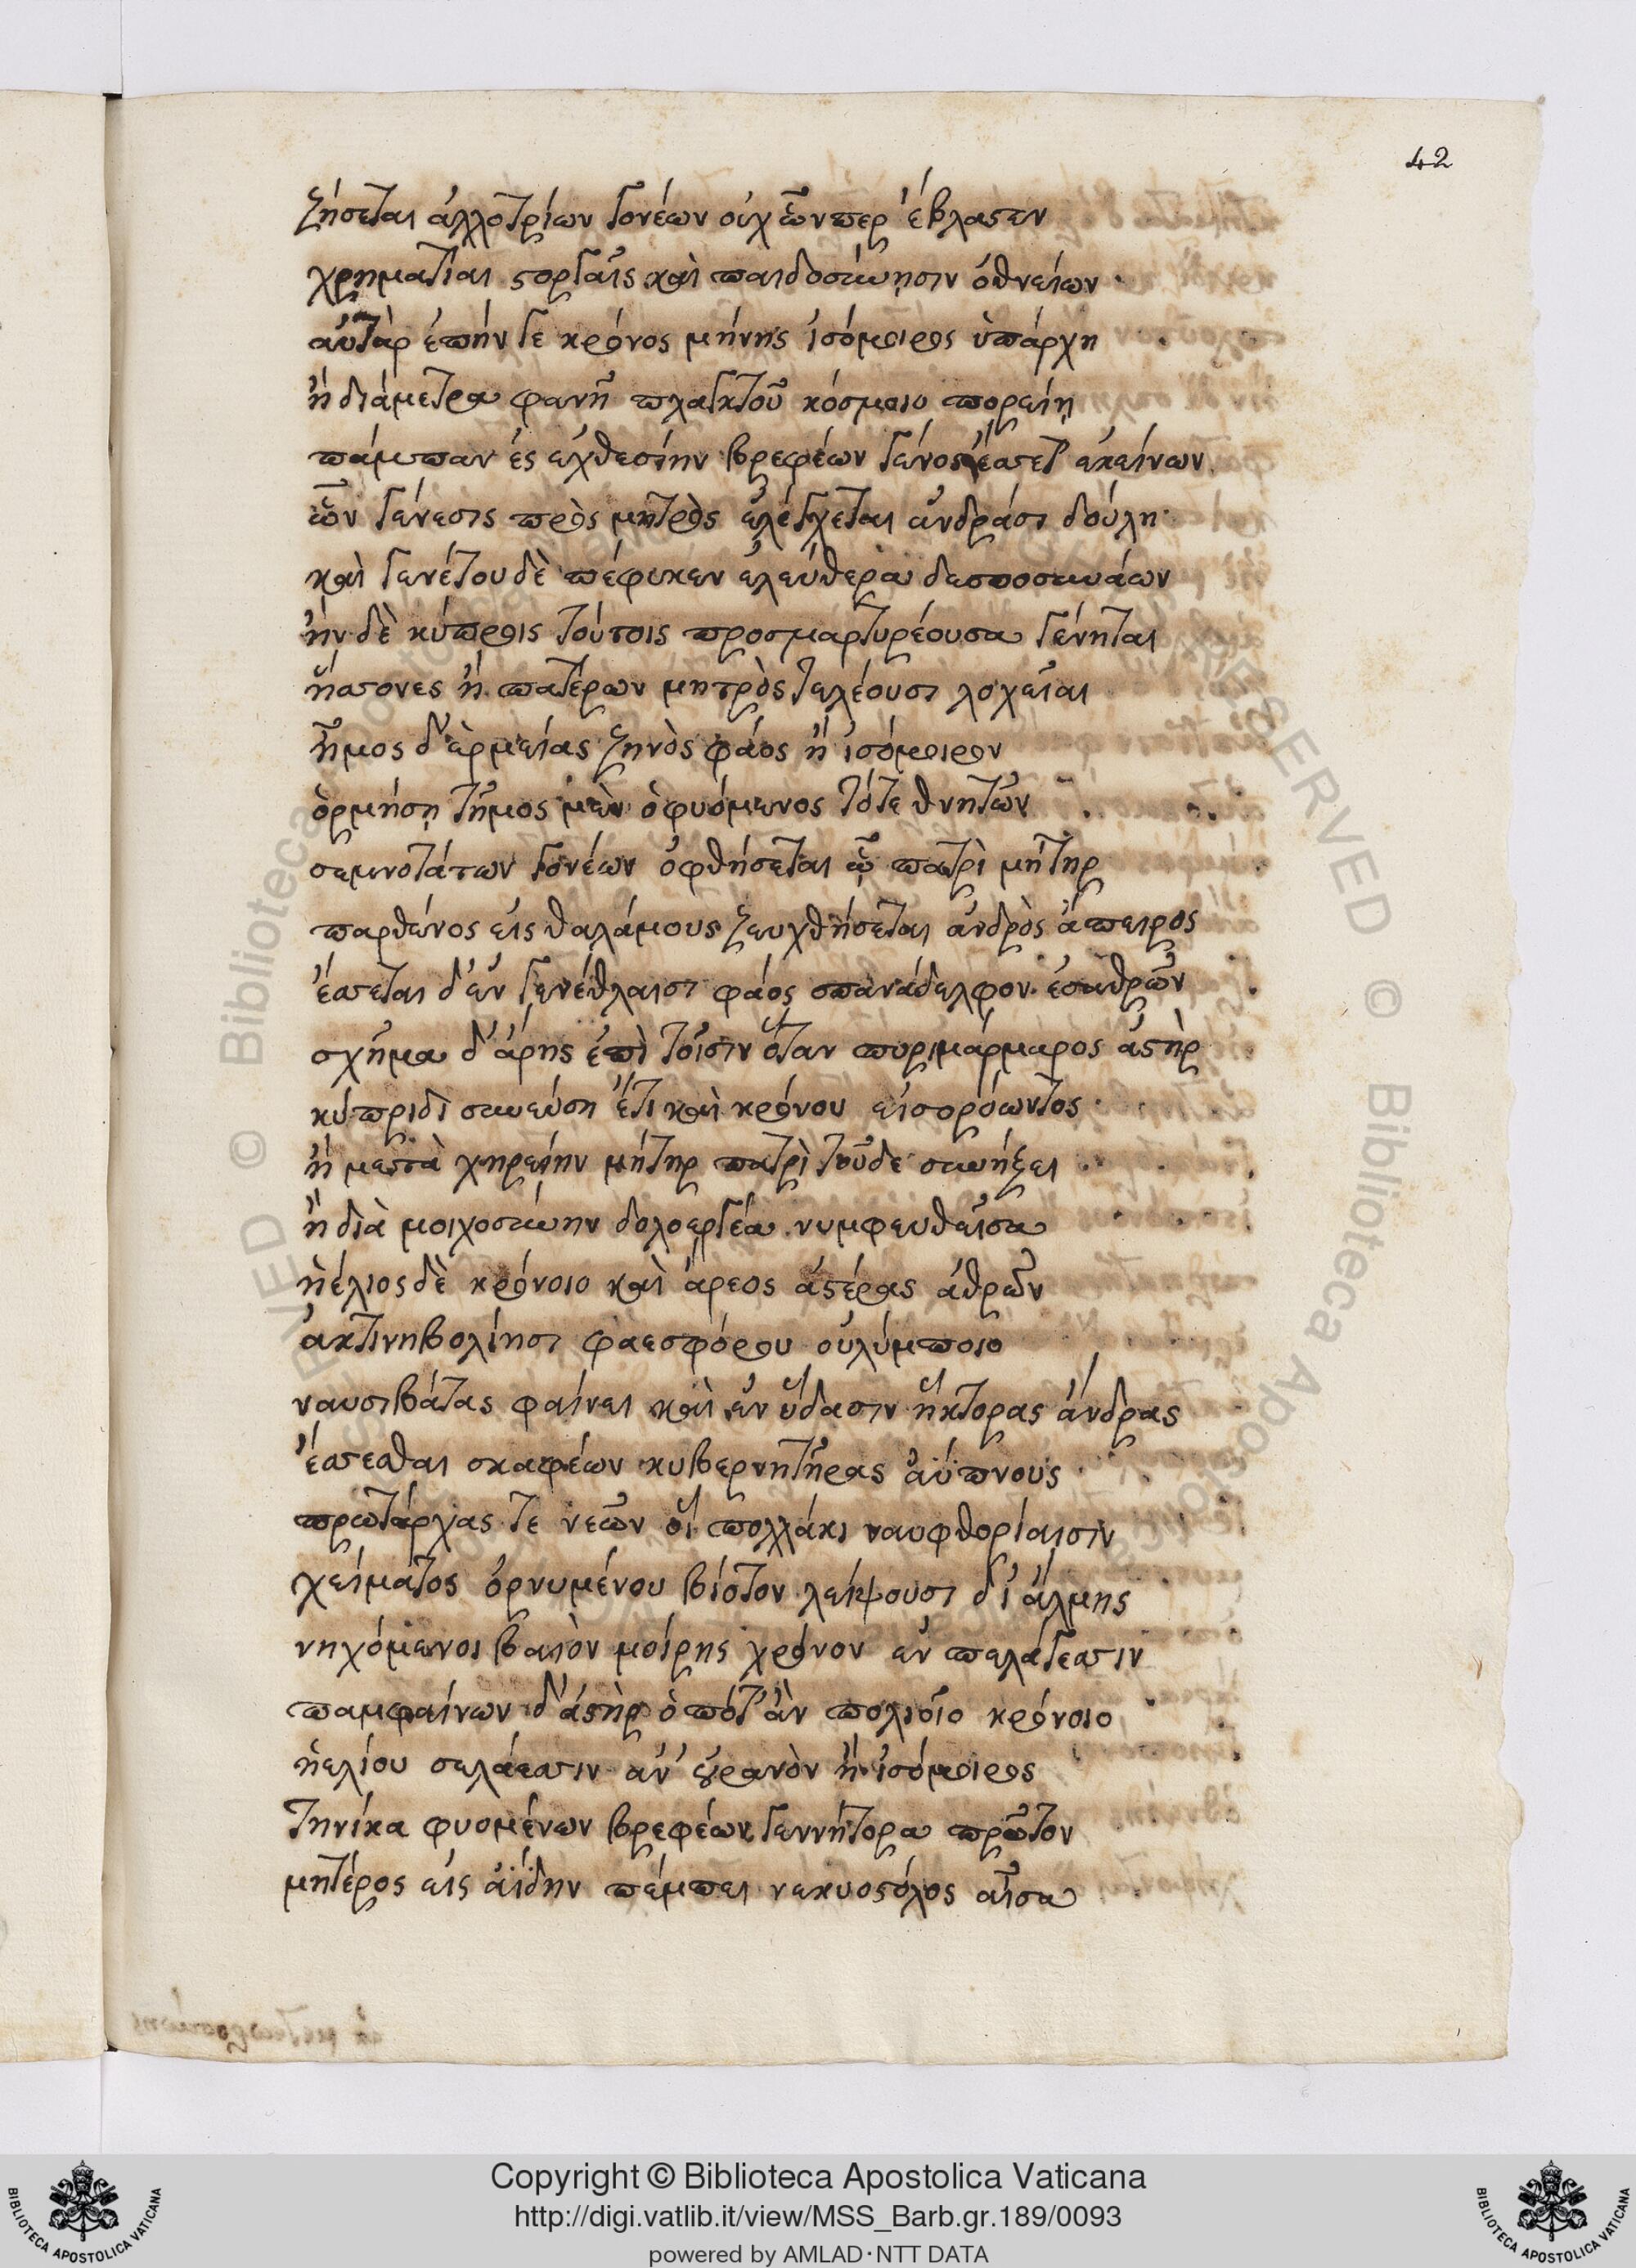 42
ζήσεται ἀλλοτρίων γονέων οὐχ ὧνπερ ἔβλαστεν
χρηματίαι στοργαῖς καὶ παιδοσύνησιν ὀθνείων
αὐτὰρ ἐπήν γε κρόνος μήνης ἰσόμοιρος ὑπάρχη
ἢ διάμετρα φανῆ πλαγκτοῦ κόσμοιο πορείη
πάμπαν ἐς ἐχθεσίην βρεφέων γένος ἔσσετ' ἐκείνων
ὧν γένεσις πρὸς μητρὸς ἐλέγχεται ἀνδράσι δούλη
καὶ γενέτου δὲ πέφυκεν ἐλευθέρα δεσποσυνάων
ἢν δὲ κύπροις τούτοις προσμαρτυρέουσα γένηται
ἥσσονες ἢ πατέρων μητρὸς τελέουσι λοχεῖαι
ἦμος δ' ἑρμείας ζηνὸς φάος ἢ ἰσόμοιρον
ὁρμήσῃ τῆμος μὲν ὁ φυόμενος τότε θνητῶν
σεμνοτάτων γονέων ὀφθήσεται ᾧ πατρὶ μήτηρ
παρθένος εἰς θαλάμους ζευχθήσεται ἀνδρὸς ἄπειρος
ἔσσεται δ' ἐν γενέθλαισι φάος σπανάδελφον ἐσαθρῶν
σχῆμα δ' ἄρης ἐπὶ τοῖσιν ὅταν πυριμάρμαρος ἀστὴρ
κύπριδι συνεύση ἔτι καὶ κρόνου εἰσορόωντος
ἢ μετὰ χηρείην μήτηρ πατρὶ τοῦδε συνήξει
ἢ διὰ μοιχοσύνην δολοεργέα νυμφευθεῖσα
ἠέλιος δὲ κρόνοιο καὶ ἄρεος ἀστέρας ἀθρῶν
ἀκτινηβολίησι φαεσφόρου οὐλύμποιο
ναυσιβάτας φαίνει καὶ ἐν ὕδασιν ἥκτορας ἄνδρας
ἔσσεσθαι σκαφέων κυβερνητῆρας ἀΰπνους
πρωτάρχας τε νεῶν οἳ πολλάκι ναυφθορίαισιν
χείματος ὀρνυμένου βίοτον λείψουσι δι' ἅλμης
νηχόμενοι βαιὸν μοίρης χρόνον ἐν πελάγεσσιν
παμφαίνων δ' ἀστὴρ ὁπότ' ἂν πολιοῖο κρόνοιο
ἠελίου σελάεσσιν ἀν' οὐρανὸν ἢ ἰσόμοιρος
τηνίκα φυομένων βρεφέων γεννήτορα πρῶτον
μητέρος εἰς ἀΐδην πέμπει νεκυοστόλος αἶσα
Copyright © Biblioteca Apostolica Vaticana
http://digi.vatlib.it/view/MSS_Barb.gr.189/0093
powered by AMLAD·NTT DATA